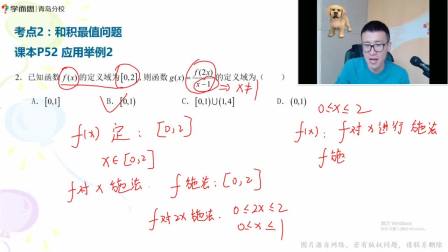 学而思 青岛分校
考点2:和积最值问题
课本P52 应用举例2
2. 已知函数 f(x) 的定义域为[0,2],则函数 g(x)=f(2x)/(x-1) 的定义域为( )
⇒ x≠1
A. [0,1] B. [0,1) C. [0,1)∪(1,4] D. (0,1)
0≤x≤2
f(x) 定:[0,2]
f(x):f对x进行施法
x∈[0,2]
f施
f对x施法. f施法:[0,2]
f对2x施法. 0≤2x≤2
0≤x≤1
激活 Windows
图片源自网络,若有版权问题,请联系删除